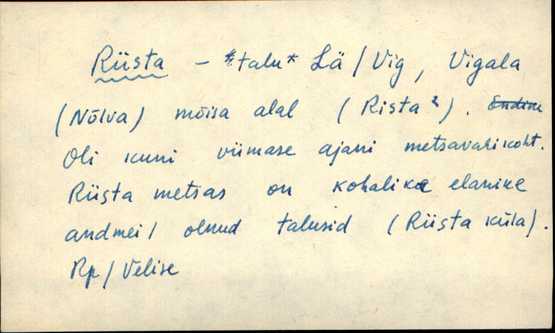 Riista – *talu* Lä / Vig, Vigala
(Nõlva) mõisa alal (Rista?). Endine
Oli kuni viimase ajani metsavahikoht.
Riista metsas on kohalike elanike
andmeil olnud talusid (Riista küla).
Rp / Velise